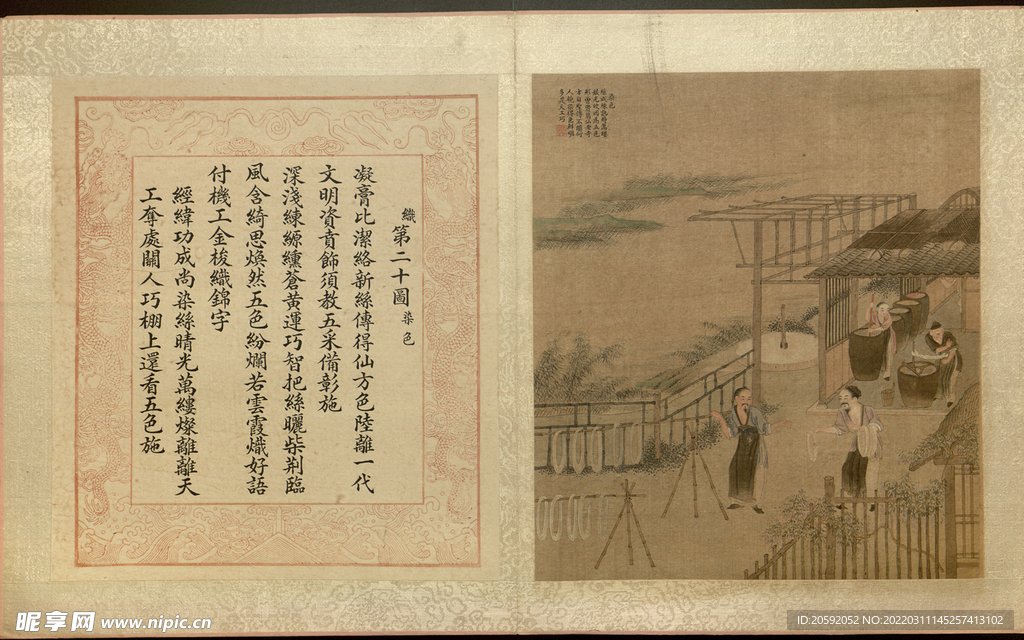 織第二十圖染色
凝膏比潔絡新絲傳得仙方色陸離一代
文明資賁飾須教五采備彰施
深淺練縓纁蒼黃運巧智把絲曬柴荊臨
風含綺思煥然五色紛爛若雲霞熾好語
付機工金梭織錦字
經緯功成尚染絲晴光萬縷燦離離天
工奪處關人巧棚上還看五色施
染色
昵享网 www.nipic.cn
ID:20592052 NO:20220311145257413102